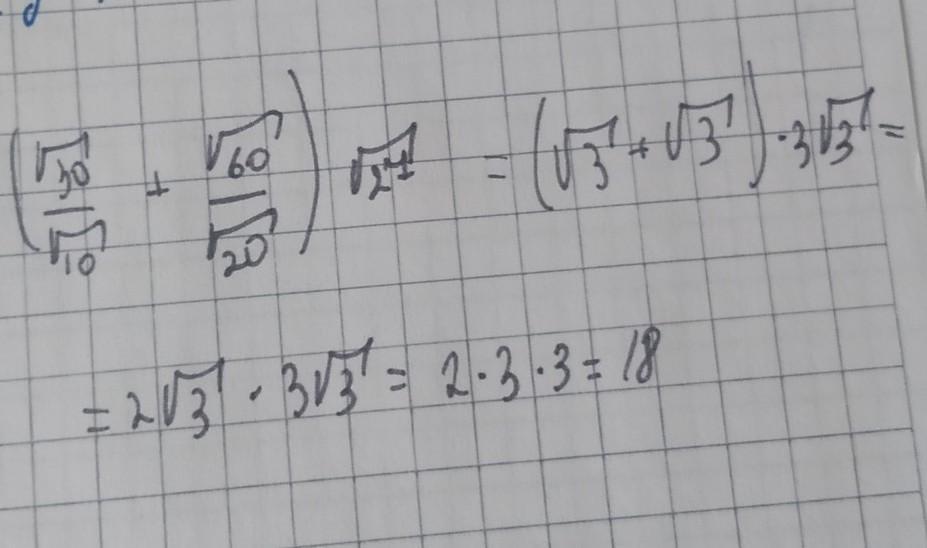 (√30/√10 + √60/√20) √27 = (√3 + √3) · 3√3 =
= 2√3 · 3√3 = 2 · 3 · 3 = 18